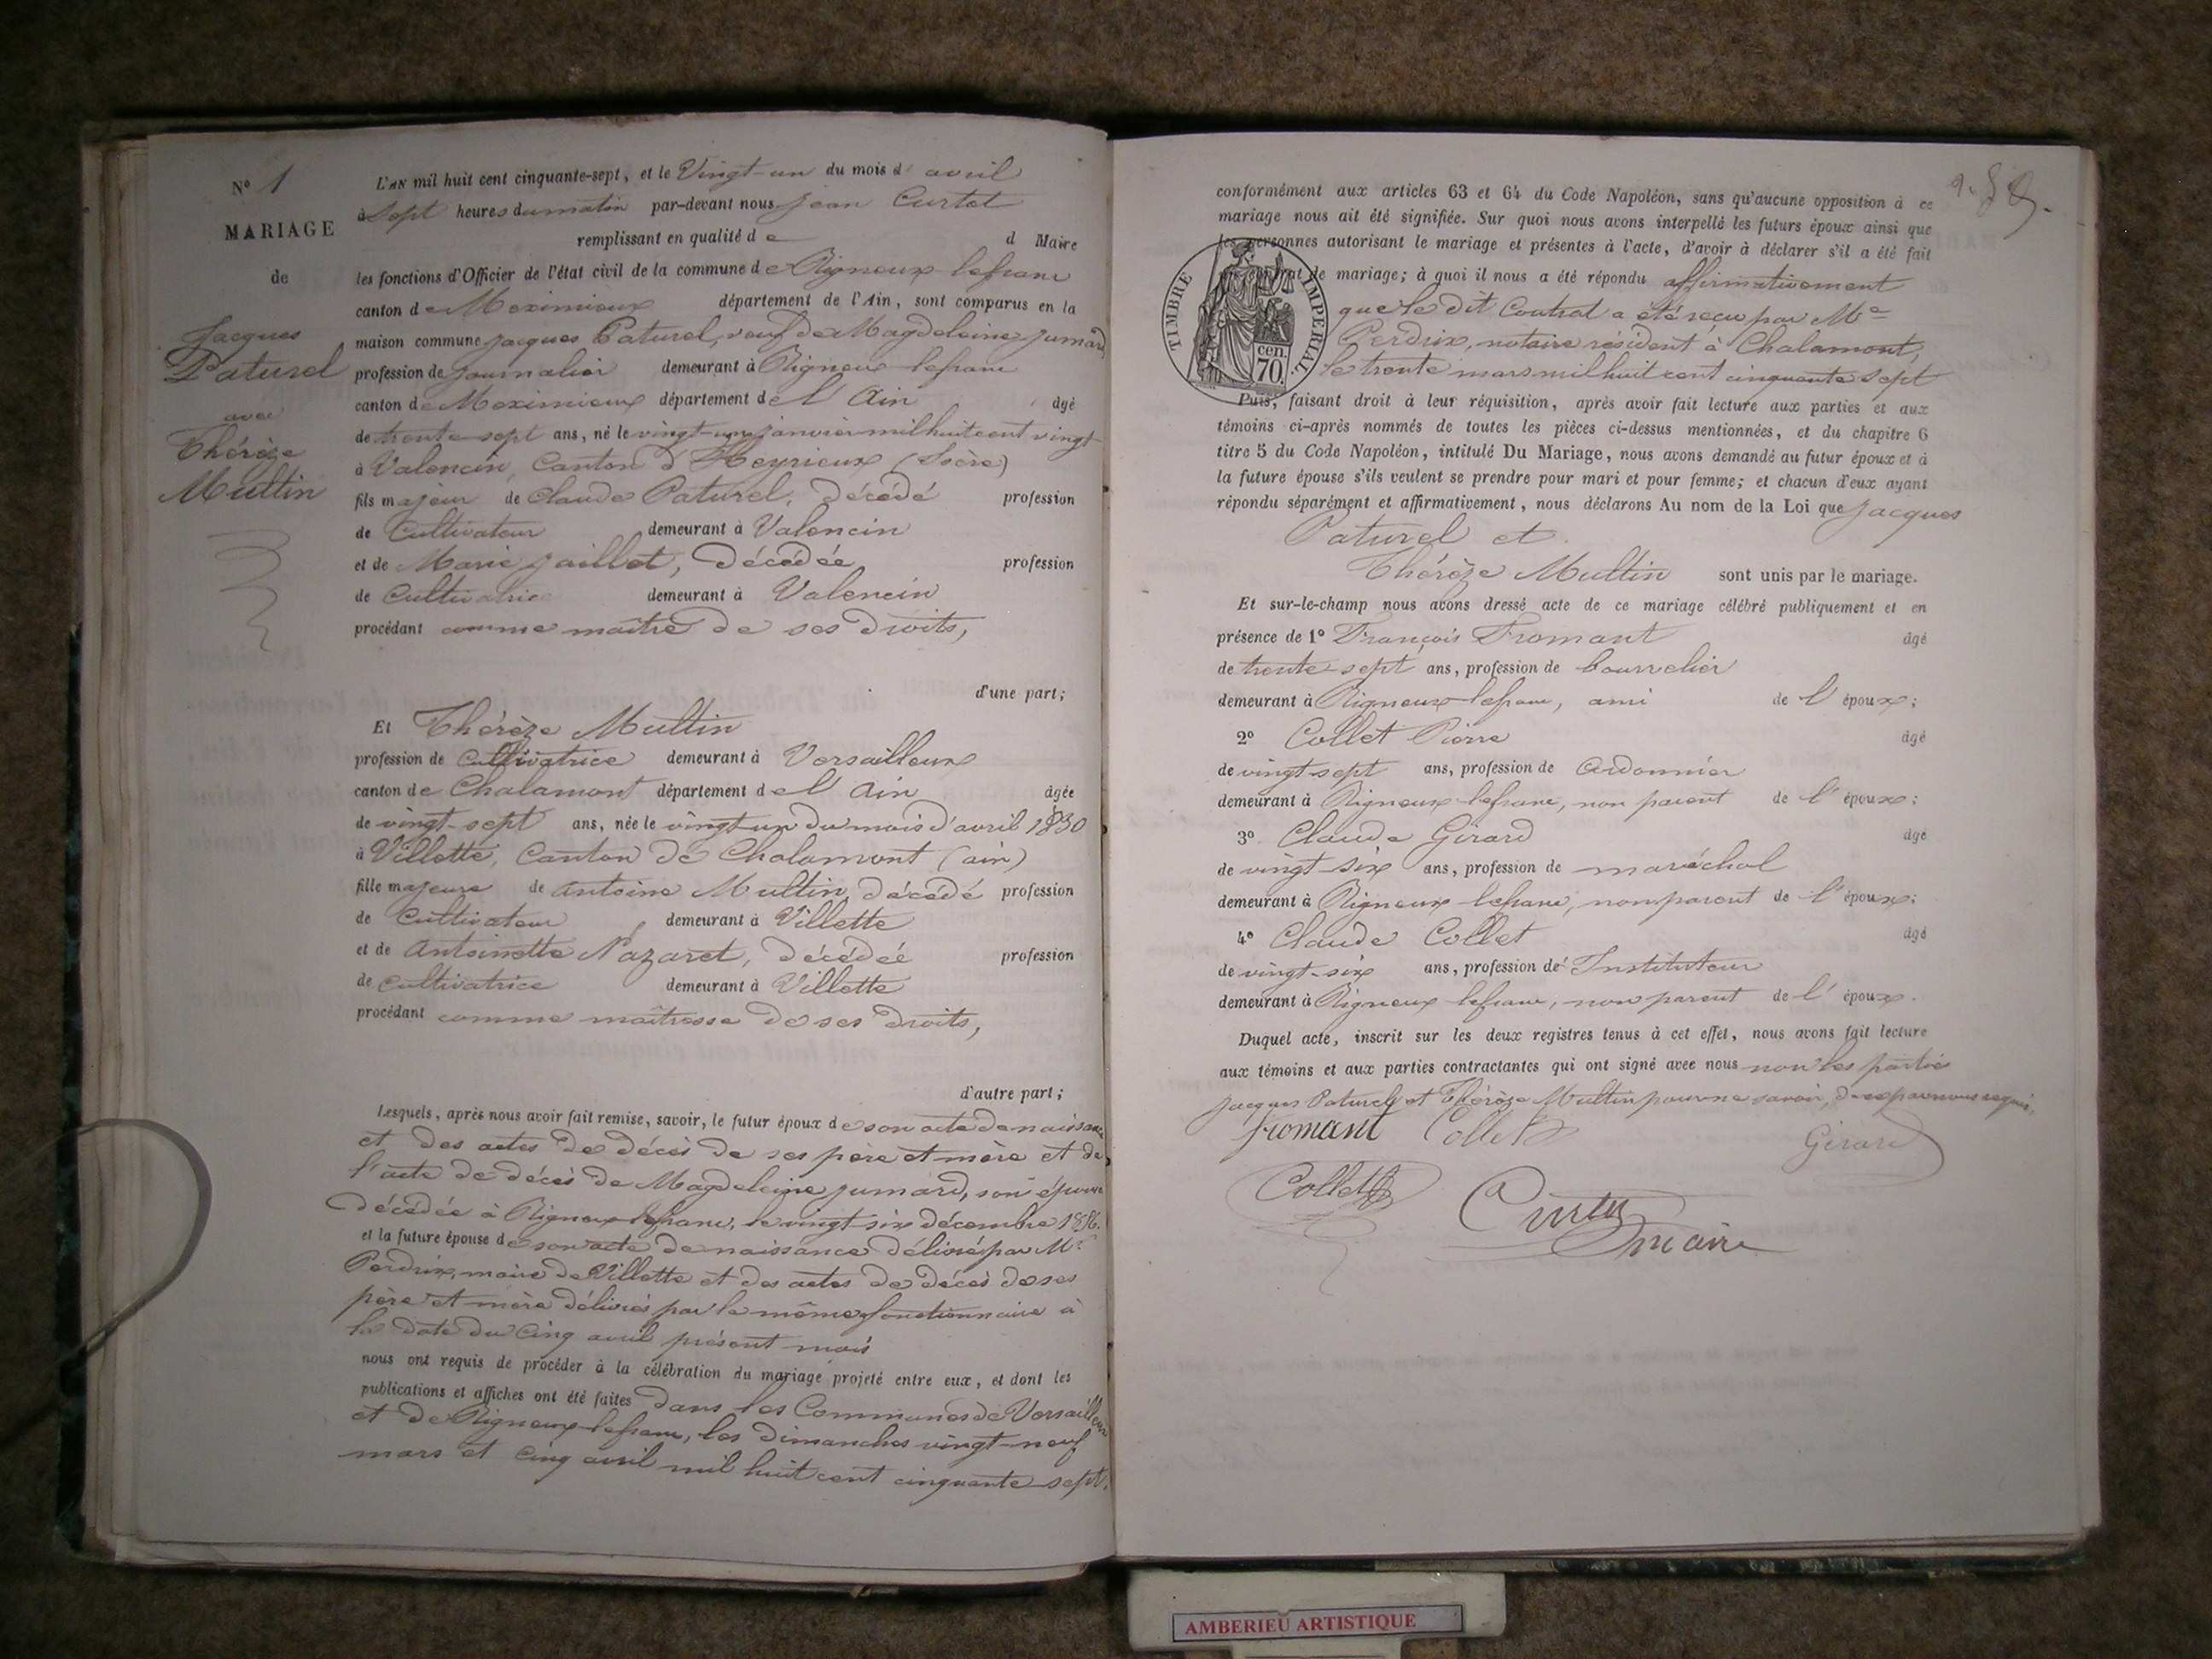 N° 1
MARIAGE
de
Jacques
Paturel
avec
Thérèze
Multin
L'AN mil huit cent cinquante-sept, et le Vingt-un du mois d' avril
à Sept heures du matin par-devant nous Jean Curtet
remplissant en qualité de d Maire
les fonctions d'Officier de l'état civil de la commune de Rigneux-lefranc
canton de Meximieux département de l'Ain, sont comparus en la
maison commune Jacques Paturel, veuf de Magdeleine Jumard
profession de Journalier demeurant à Rigneux-lefranc
canton de Meximieux département de l'Ain âgé
de trente-sept ans, né le vingt-un janvier mil huit cent vingt
à Valencin, Canton d'Heyrieux (Isère)
fils majeur de Claude Paturel, décédé profession
de Cultivateur demeurant à Valencin
et de Marie Jaillet, décédée profession
de Cultivatrice demeurant à Valencin
procédant comme maître de ses droits,
d'une part;
Et Thérèze Multin
profession de Cultivatrice demeurant à Versailleux
canton de Chalamont département de l'Ain âgée
de vingt-sept ans, née le vingt-un du mois d'avril 1830
à Villette, Canton de Chalamont (ain)
fille majeure de Antoine Multin, décédé profession
de Cultivateur demeurant à Villette
et de Antoinette Nazaret, décédée profession
de Cultivatrice demeurant à Villette
procédant comme maîtresse de ses droits,
d'autre part;
Lesquels, après nous avoir fait remise, savoir, le futur époux de son acte de naissance
et des actes de décès de ses père et mère et de
l'acte de décès de Magdeleine Jumard, son épouse
décédée à Rigneux-lefranc, le vingt-six décembre 1856.
et la future épouse de son acte de naissance délivré par Mr
Perdrix, maire de Villette et des actes de décès de ses
père et mère délivrés par le même fonctionnaire à
la date du cinq avril présent mois
nous ont requis de procéder à la célébration du mariage projeté entre eux, et dont les
publications et affiches ont été faites dans les Communes de Versailleux
et de Rigneux-lefranc, les dimanches vingt-neuf
mars et cinq avril mil huit cent cinquante-sept.
conformément aux articles 63 et 64 du Code Napoléon, sans qu'aucune opposition à ce
mariage nous ait été signifiée. Sur quoi nous avons interpellé les futurs époux ainsi que
les personnes autorisant le mariage et présentes à l'acte, d'avoir à déclarer s'il a été fait
contrat de mariage; à quoi il nous a été répondu affirmativement
que le dit Contrat a été reçu par Me
Perdrix, notaire résident à Chalamont,
le trente mars mil huit cent cinquante sept
TIMBRE IMPERIAL
70 cen.
Puis, faisant droit à leur réquisition, après avoir fait lecture aux parties et aux
témoins ci-après nommés de toutes les pièces ci-dessus mentionnées, et du chapitre 6
titre 5 du Code Napoléon, intitulé Du Mariage, nous avons demandé au futur époux et à
la future épouse s'ils veulent se prendre pour mari et pour femme; et chacun d'eux ayant
répondu séparément et affirmativement, nous déclarons Au nom de la Loi que Jacques
Paturel et
Thérèze Multin sont unis par le mariage.
Et sur-le-champ nous avons dressé acte de ce mariage célébré publiquement et en
présence de 1° François Fromant âgé
de trente-sept ans, profession de bourrelier
demeurant à Rigneux-lefranc, ami de l'époux;
2° Collet Pierre âgé
de vingt-sept ans, profession de Cordonnier
demeurant à Rigneux-lefranc, non parent de l'époux;
3° Claude Girard âgé
de vingt-six ans, profession de maréchal
demeurant à Rigneux-lefranc, non parent de l'époux;
4° Claude Collet âgé
de vingt-six ans, profession de Instituteur
demeurant à Rigneux lefranc, non parent de l'époux.
Duquel acte, inscrit sur les deux registres tenus à cet effet, nous avons fait lecture
aux témoins et aux parties contractantes qui ont signé avec nous non les parties
Jacques Paturel et Thérèze Multin pour ne savoir, de ce par nous requis,
fromant Collet Girard
Collet Curtet
maire
AMBERIEU ARTISTIQUE